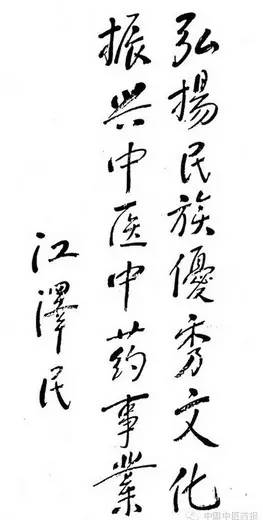 弘揚民族優秀文化
振兴中医中药事業
江澤民
中国中医药报